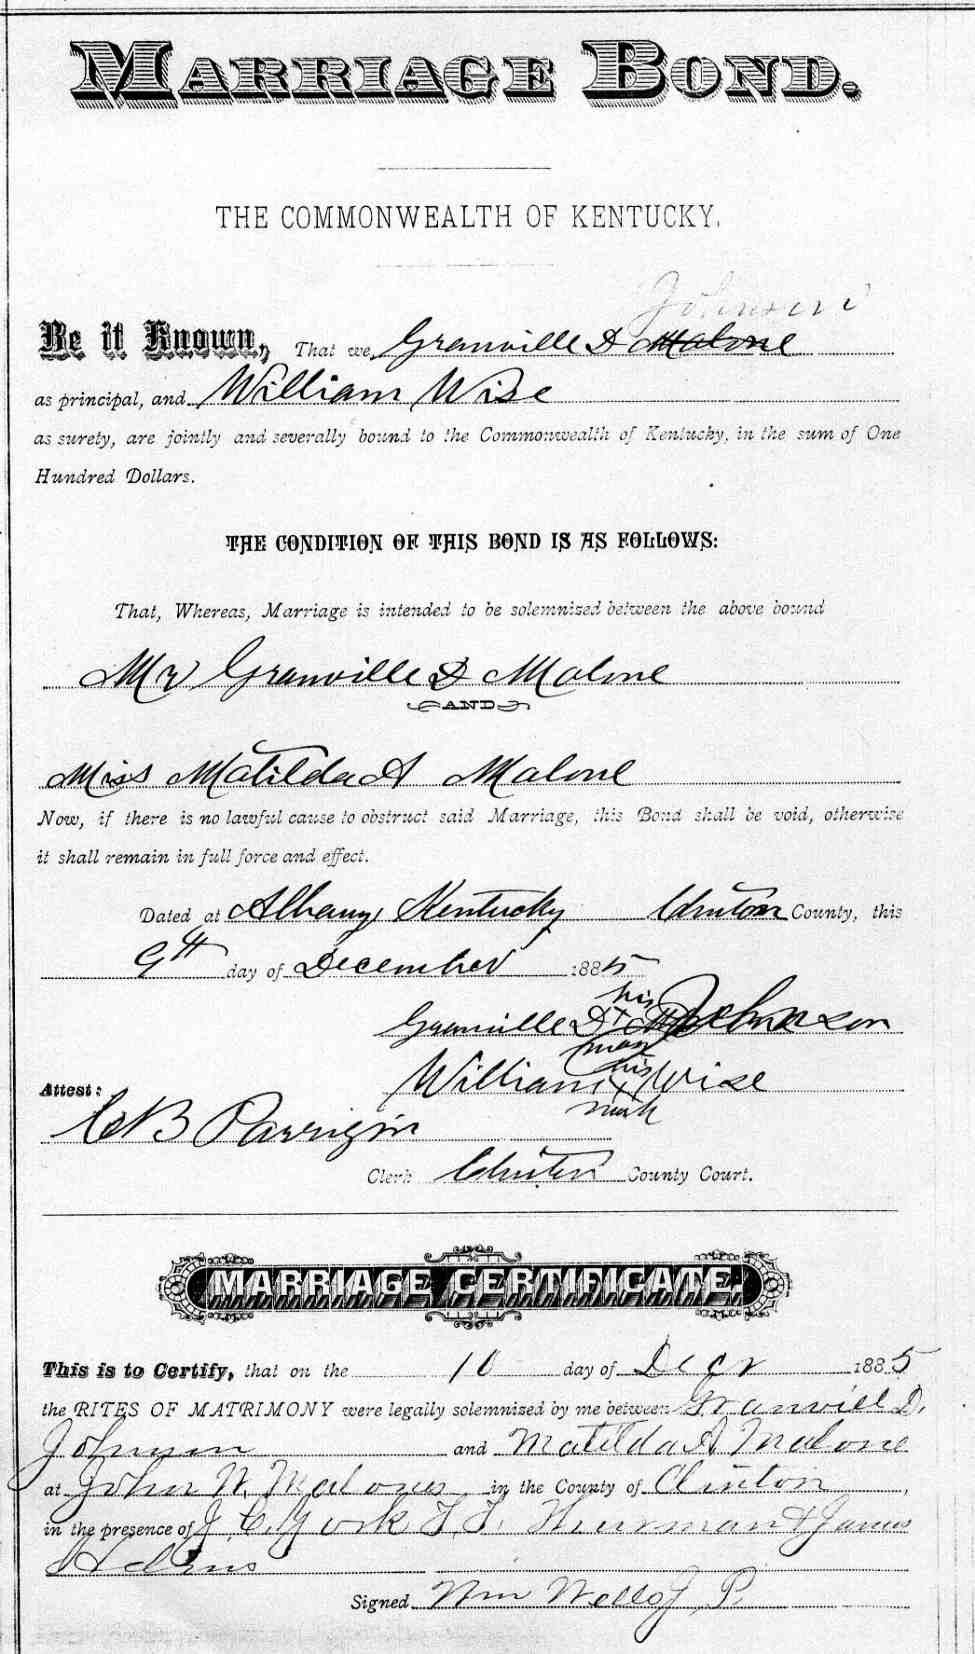 MARRIAGE BOND.
THE COMMONWEALTH OF KENTUCKY.
Johnson
Be it Known, That we, Granville D Malone
as principal, and William Wise
as surety, are jointly and severally bound to the Commonwealth of Kentucky, in the sum of One
Hundred Dollars.
THE CONDITION OF THIS BOND IS AS FOLLOWS:
That, Whereas, Marriage is intended to be solemnized between the above bound
Mr Granville D Malone
AND
Miss Matilda A Malone
Now, if there is no lawful cause to obstruct said Marriage, this Bond shall be void, otherwise
it shall remain in full force and effect.
Dated at Albany Kentucky Clinton County, this
9th day of December 1885
his
Granville D x Johnson
mark
his
William x Wise
mark
Attest:
C B Parrigin
Clerk Clinton County Court.
MARRIAGE CERTIFICATE.
This is to Certify, that on the 10 day of Decr 1885
the RITES OF MATRIMONY were legally solemnized by me between Granvill D.
Johnson and Matilda A Malone
at John W. Malones in the County of Clinton,
in the presence of J. C. York F. F. Thurman & James
Signed Wm Wells J. P.